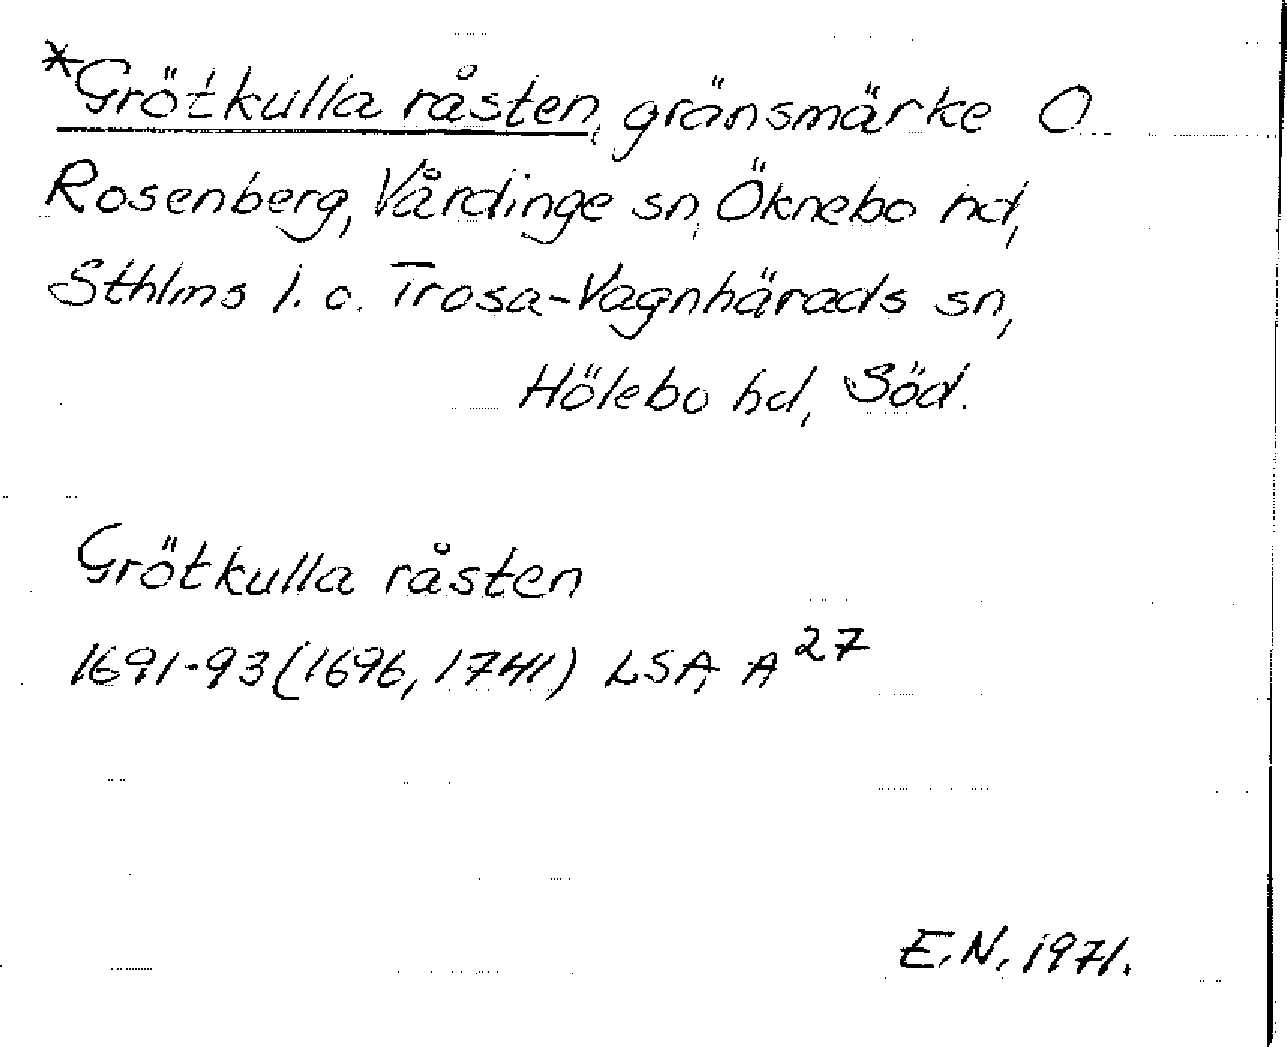 *Grötkulla råsten, gränsmärke O
Rosenberg, Vårdinge sn, Öknebo hd,
Sthlms l. o. Trosa-Vagnhärads sn,
Hölebo hd, Söd.
Grötkulla råsten
1691-93 (1696, 1741) LSA, A 27
E.N. 1971.